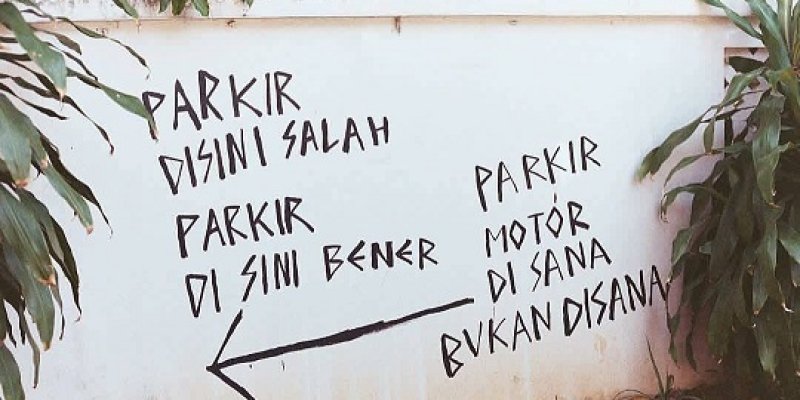 PARKIR
DISINI SALAH
PARKIR
DI SINI BENER
PARKIR
MOTÓR
DI SANA
BUKAN DISANA